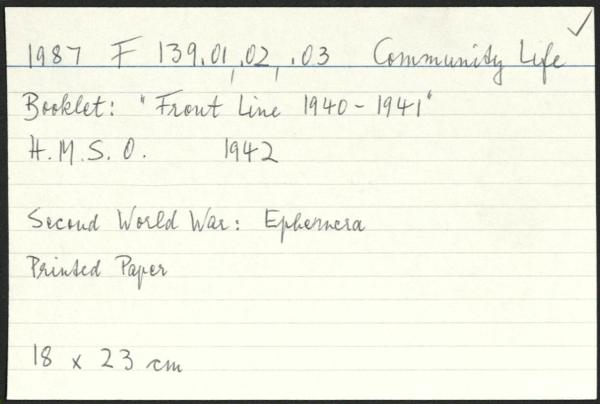 1987 F 139.01, .02, .03 Community Life
Booklet: "Front Line 1940-1941"
H.M.S.O. 1942
Second World War: Ephemera
Printed Paper
18 x 23 cm